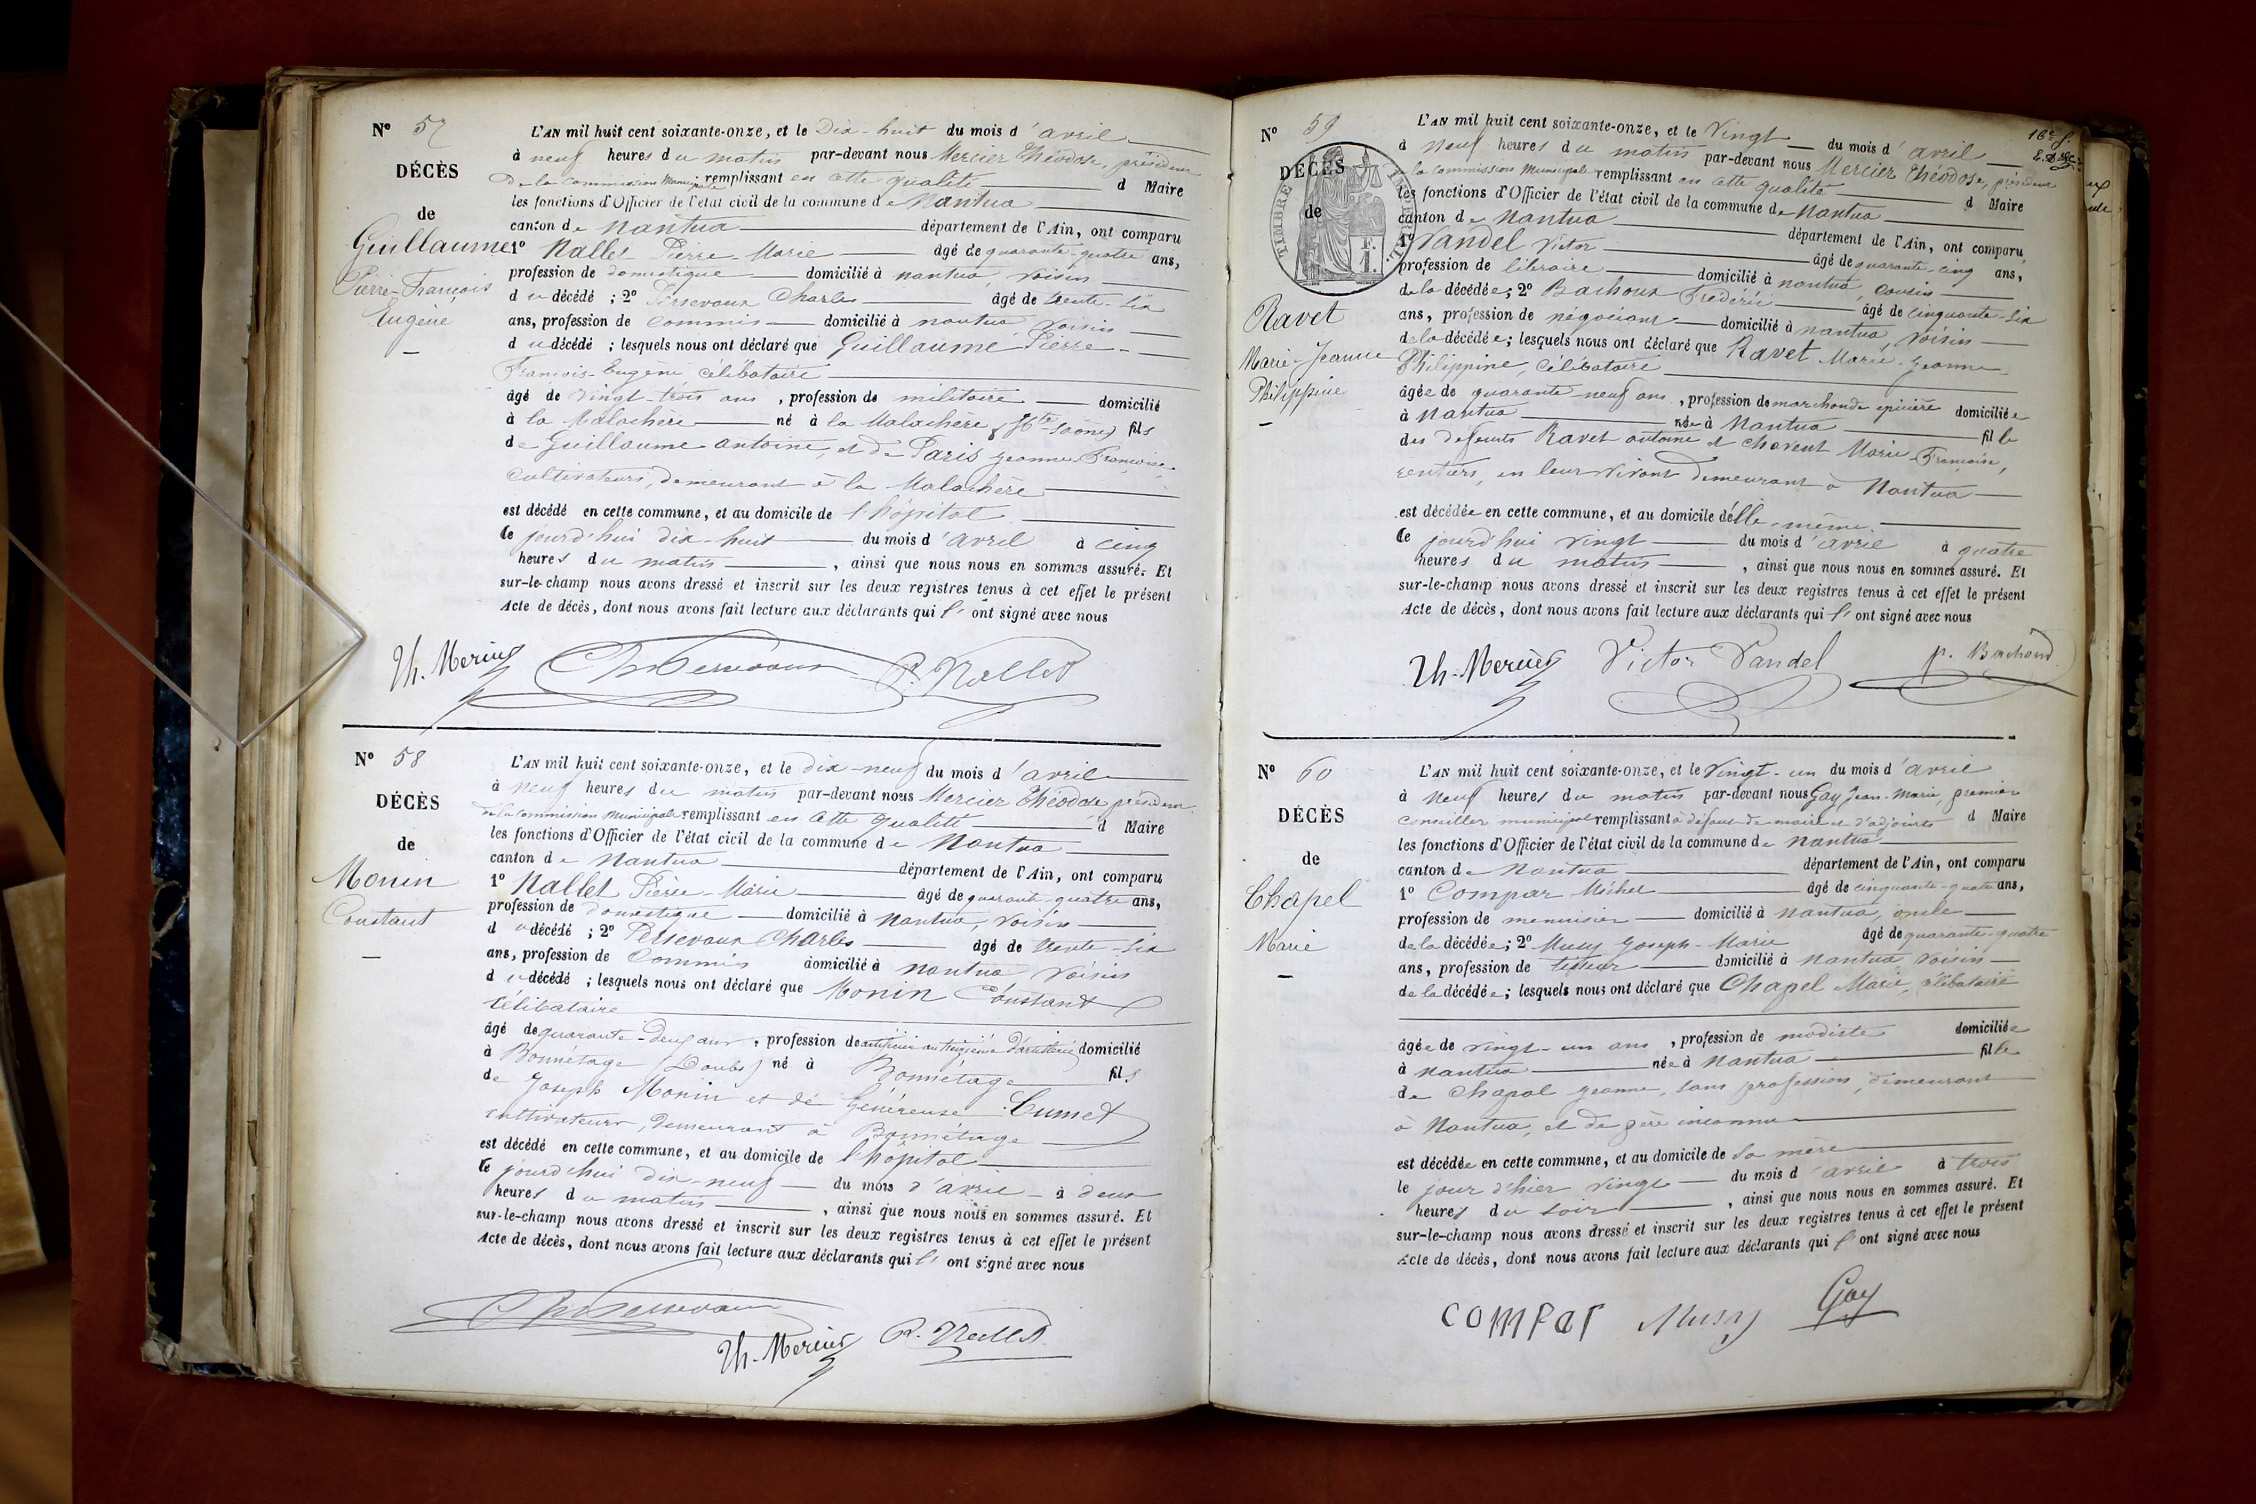 Nº 57
DÉCÈS
de
Guillaume
Pierre-François
Eugène
L'AN mil huit cent soixante-onze, et le Dix-huit du mois d'avril
à neuf heures du matin par-devant nous Mercier Théodose, président
de la commission Municipale remplissant en cette qualité d Maire
les fonctions d'Officier de l'état civil de la commune de Nantua
canton de Nantua département de l'Ain, ont comparu
1º Nallet Pierre-Marie âgé de quarante-quatre ans,
profession de domestique domicilié à nantua, voisin
du décédé ; 2º Persevaux Charles âgé de trente-six
ans, profession de commis domicilié à nantua voisin
du décédé ; lesquels nous ont déclaré que Guillaume Pierre-
François-Eugène, célibataire
âgé de vingt-trois ans, profession de militaire domicilié
à la Malachère né à la Malachère (Hte-Saône) fils
de Guillaume antoine, et de Paris Jeanne-Françoise
cultivateurs, demeurant à la Malachère
est décédé en cette commune, et au domicile de l'hôpital
le jourd'hui dix-huit du mois d'avril à cinq
heures du matin, ainsi que nous nous en sommes assuré. Et
sur-le-champ nous avons dressé et inscrit sur les deux registres tenus à cet effet le présent
Acte de décès, dont nous avons fait lecture aux déclarants qui l' ont signé avec nous
Th. Mercier Ch Persevaux P. Nallet
Nº 58
DÉCÈS
de
Monin
Constant
L'AN mil huit cent soixante-onze, et le dix-neuf du mois d'avril
à neuf heures du matin par-devant nous Mercier Théodose président
de la commission Municipale remplissant en cette qualité d Maire
les fonctions d'Officier de l'état civil de la commune de Nantua
canton de Nantua département de l'Ain, ont comparu
1º Nallet Pierre-Marie âgé de quarante-quatre ans,
profession de domestique domicilié à nantua, voisin
du décédé ; 2º Persevaux Charles âgé de trente-six
ans, profession de Commis domicilié à nantua voisin
du décédé ; lesquels nous ont déclaré que Monin Constant
célibataire
âgé de quarante-deux ans, profession de artificier au treizième d'artillerie domicilié
à Bonnétage (Doubs) né à Bonnétage fils
de Joseph Monin et de Généreuse Cumet
cultivateurs, demeurant à Bonnétage
est décédé en cette commune, et au domicile de l'hôpital
le jourd'hui dix-neuf du mois d'avril à deux
heures du matin, ainsi que nous nous en sommes assuré. Et
sur-le-champ nous avons dressé et inscrit sur les deux registres tenus à cet effet le présent
Acte de décès, dont nous avons fait lecture aux déclarants qui l' ont signé avec nous
Ch Persevaux
Th. Mercier P. Nallet
Nº 59
DÉCÈS
de
TIMBRE IMPÉRIAL
F.
1.
Ravet
Marie-Jeanne
Philippine
16e f.
L'AN mil huit cent soixante-onze, et le Vingt du mois d'avril
à neuf heures du matin par-devant nous Mercier Théodose, président
la commission Municipale remplissant en cette qualité d Maire
les fonctions d'Officier de l'état civil de la commune de Nantua
canton de Nantua département de l'Ain, ont comparu
1º Vandel Victor âgé de quarante-cinq ans,
profession de libraire domicilié à nantua, cousin
de la décédée ; 2º Bachoux Frédéric âgé de cinquante-six
ans, profession de négociant domicilié à nantua, voisin
de la décédée ; lesquels nous ont déclaré que Ravet Marie-Jeanne
Philippine, célibataire
âgée de quarante-neuf ans, profession de marchande épicière domiciliée
à Nantua née à Nantua fille
des defunts Ravet antoine et Chavent Marie Françoise,
rentiers, en leur vivant demeurant à Nantua
est décédée en cette commune, et au domicile d'elle-même.
le jourd'hui vingt du mois d'avril à quatre
heures du matin, ainsi que nous nous en sommes assuré. Et
sur-le-champ nous avons dressé et inscrit sur les deux registres tenus à cet effet le présent
Acte de décès, dont nous avons fait lecture aux déclarants qui l' ont signé avec nous
Th. Mercier Victor Vandel
Nº 60
DÉCÈS
de
Chapel
Marie
L'AN mil huit cent soixante-onze, et le Vingt-un du mois d'avril
à neuf heures du matin par-devant nous Gay Jean-Marie, premier
Conseiller municipal remplissant à défaut de maire et d'adjoints d Maire
les fonctions d'Officier de l'état civil de la commune de Nantua
canton de Nantua département de l'Ain, ont comparu
1º Compar Michel âgé de cinquante-quatre ans,
profession de menuisier domicilié à nantua, oncle
de la décédée ; 2º Musy Joseph-Marie âgé de quarante-quatre
ans, profession de domicilié à nantua voisin
de la décédée ; lesquels nous ont déclaré que Chapel Marie, célibataire
âgée de vingt-un ans, profession de modiste domiciliée
à nantua née à Nantua fille
de Chapel Jeanne, sans profession, demeurant
à Nantua, et de père inconnu
est décédée en cette commune, et au domicile de sa mère
le jour d'hier vingt du mois d'avril à trois
heures du soir, ainsi que nous nous en sommes assuré. Et
sur-le-champ nous avons dressé et inscrit sur les deux registres tenus à cet effet le présent
Acte de décès, dont nous avons fait lecture aux déclarants qui l' ont signé avec nous
compar Musy Gay